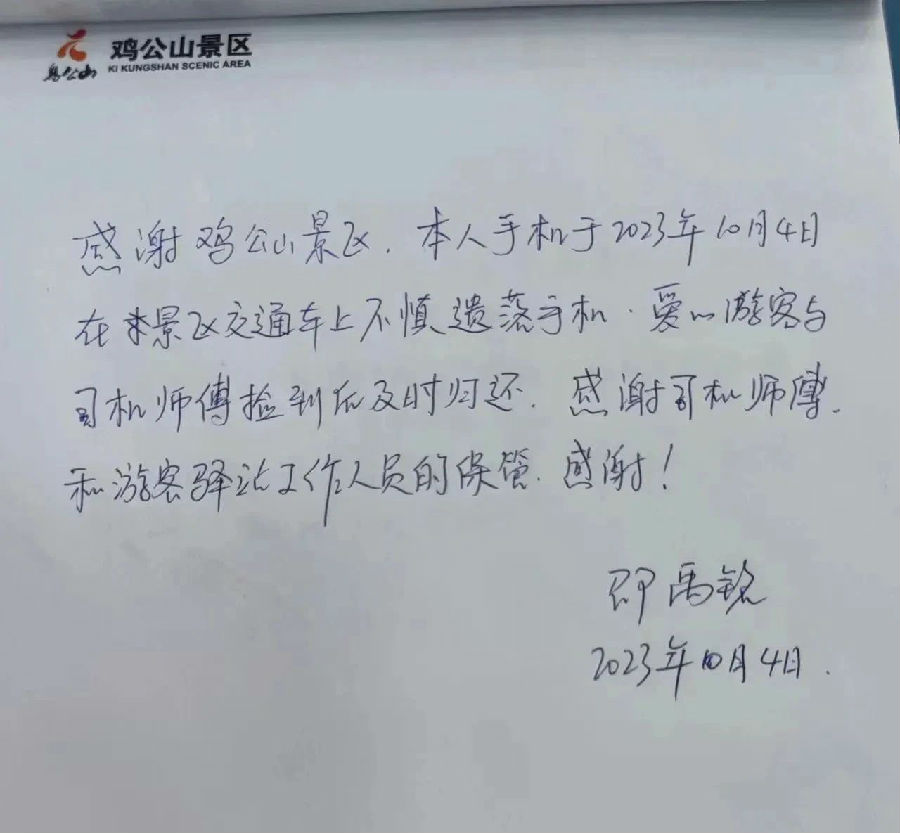 鸡公山
鸡公山景区
KI KUNGSHAN SCENIC AREA
感谢鸡公山景区.本人手机于2023年10月4日
在来景区交通车上不慎遗落手机.爱心游客与
司机师傅捡到后及时归还.感谢司机师傅.
和游客驿站工作人员的保管.感谢!
禹铭
2023年10月4日.